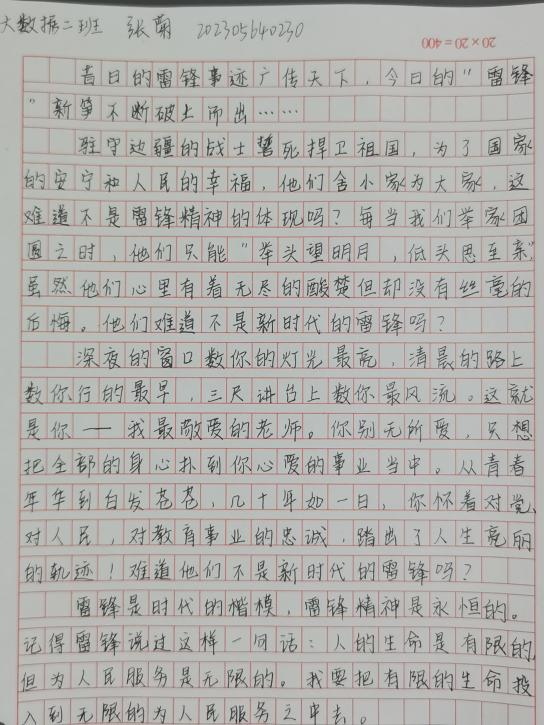 大数据二班 张菊 202305640230
20×20=400
昔日的雷锋事迹广传天下，今日的“雷锋
”新笋不断破土而出……
驻守边疆的战士誓死捍卫祖国，为了国家
的安宁和人民的幸福，他们舍小家为大家，这
难道不是雷锋精神的体现吗？每当我们举家团
圆之时，他们只能“举头望明月，低头思至亲”
虽然他们心里有着无尽的酸楚但却没有丝毫的
后悔。他们难道不是新时代的雷锋吗？
深夜的窗口数你的灯光最亮，清晨的路上
数你行的最早，三尺讲台上数你最风流。这就
是你——我最敬爱的老师。你别无所爱，只想
把全部的身心扑到你心爱的事业当中。从青春
年华到白发苍苍，几十年如一日，你怀着对党，
对人民，对教育事业的忠诚，踏出了人生亮丽
的轨迹！难道他们不是新时代的雷锋吗？
雷锋是时代的楷模，雷锋精神是永恒的。
记得雷锋说过这样一句话：人的生命是有限的，
但为人民服务是无限的。我要把有限的生命投
入到无限的为人民服务之中去。